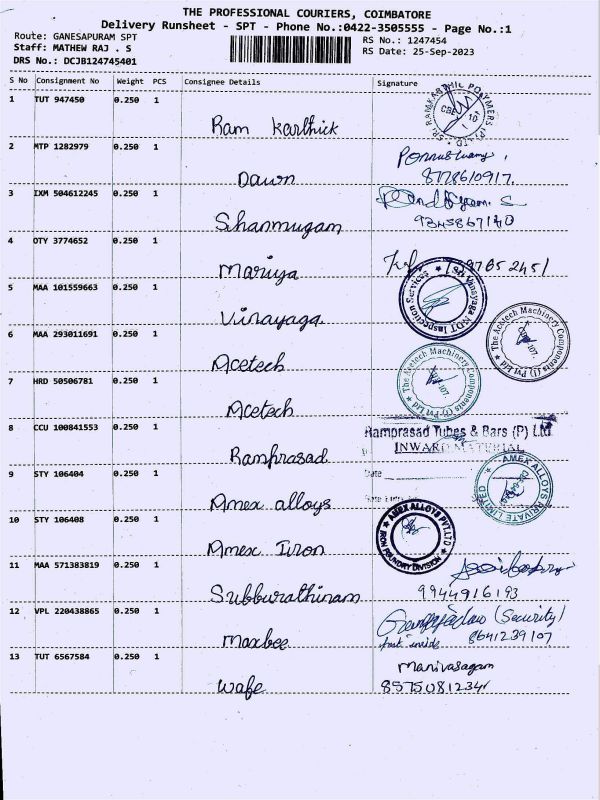 THE PROFESSIONAL COURIERS, COIMBATORE
Delivery Runsheet - SPT - Phone No.:0422-3505555 - Page No.:1
Route: GANESAPURAM SPT
RS No.: 1247454
Staff: MATHEW RAJ . S
RS Date: 25-Sep-2023
DRS No.: DCJB124745401
S No Consignment No Weight PCS Consignee Details Signature
1 TUT 947450 0.250 1
Ram Karthick
2 MTP 1282979 0.250 1
Dawn
8778610917.
3 IXM 504612245 0.250 1
Shanmugam
4 OTY 3774652 0.250 1
Mariya
5 MAA 101559663 0.250 1
Vinayaga
Sri Vinayaga NDT Inspection Services
6 MAA 293011691 0.250 1
Acetech
The Acetech Machinery Components (I) Pvt Ltd
7 HRD 50506781 0.250 1
Acetech
The Acetech Machinery Components (I) Pvt Ltd
8 CCU 100841553 0.250 1
Ramprasad
Ramprasad Tubes & Bars (P) Ltd
INWARD MATERIAL
Date
9 STY 106404 0.250 1
Amex alloys
AMEX ALLOYS PRIVATE LIMITED
10 STY 106408 0.250 1
Amex Iron
AMEX ALLOYS PVT.LTD
IRON FOUNDRY DIVISION
11 MAA 571383819 0.250 1
Subburathinam
9944916193
12 VPL 220438865 0.250 1
Maxbee
(Security)
8641239107
13 TUT 6567584 0.250 1
Wafe
Manivasagam